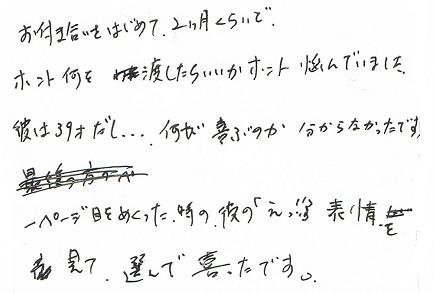 お付き合いをはじめて、2ヶ月くらいで、
ホント何を渡したらいいかホント悩んでいました
彼は39才だし... 何が喜ぶのか分からなかったです
最後の方のペ
一ページ目をめくった時の、彼の「えっ!?」表情を
見て、選んで喜ったです。